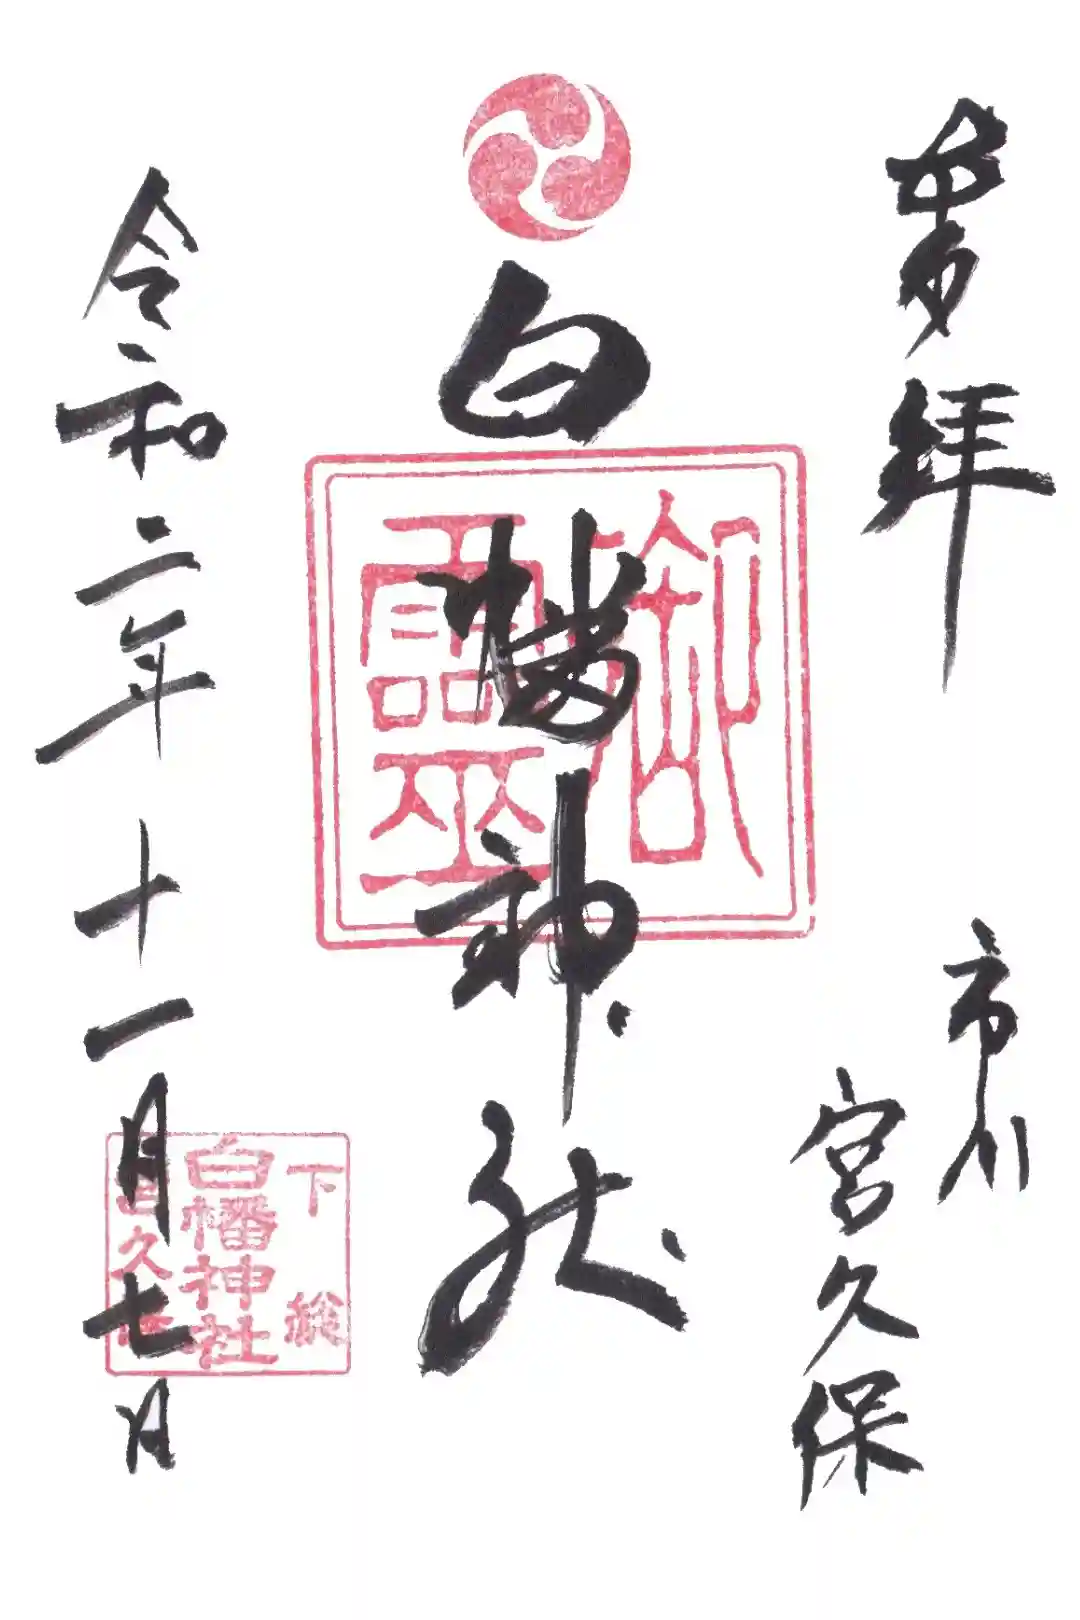 奉拝
市川
宮久保
白幡神社
御霊
令和二年十一月七日
下総
白幡神社
宮久保